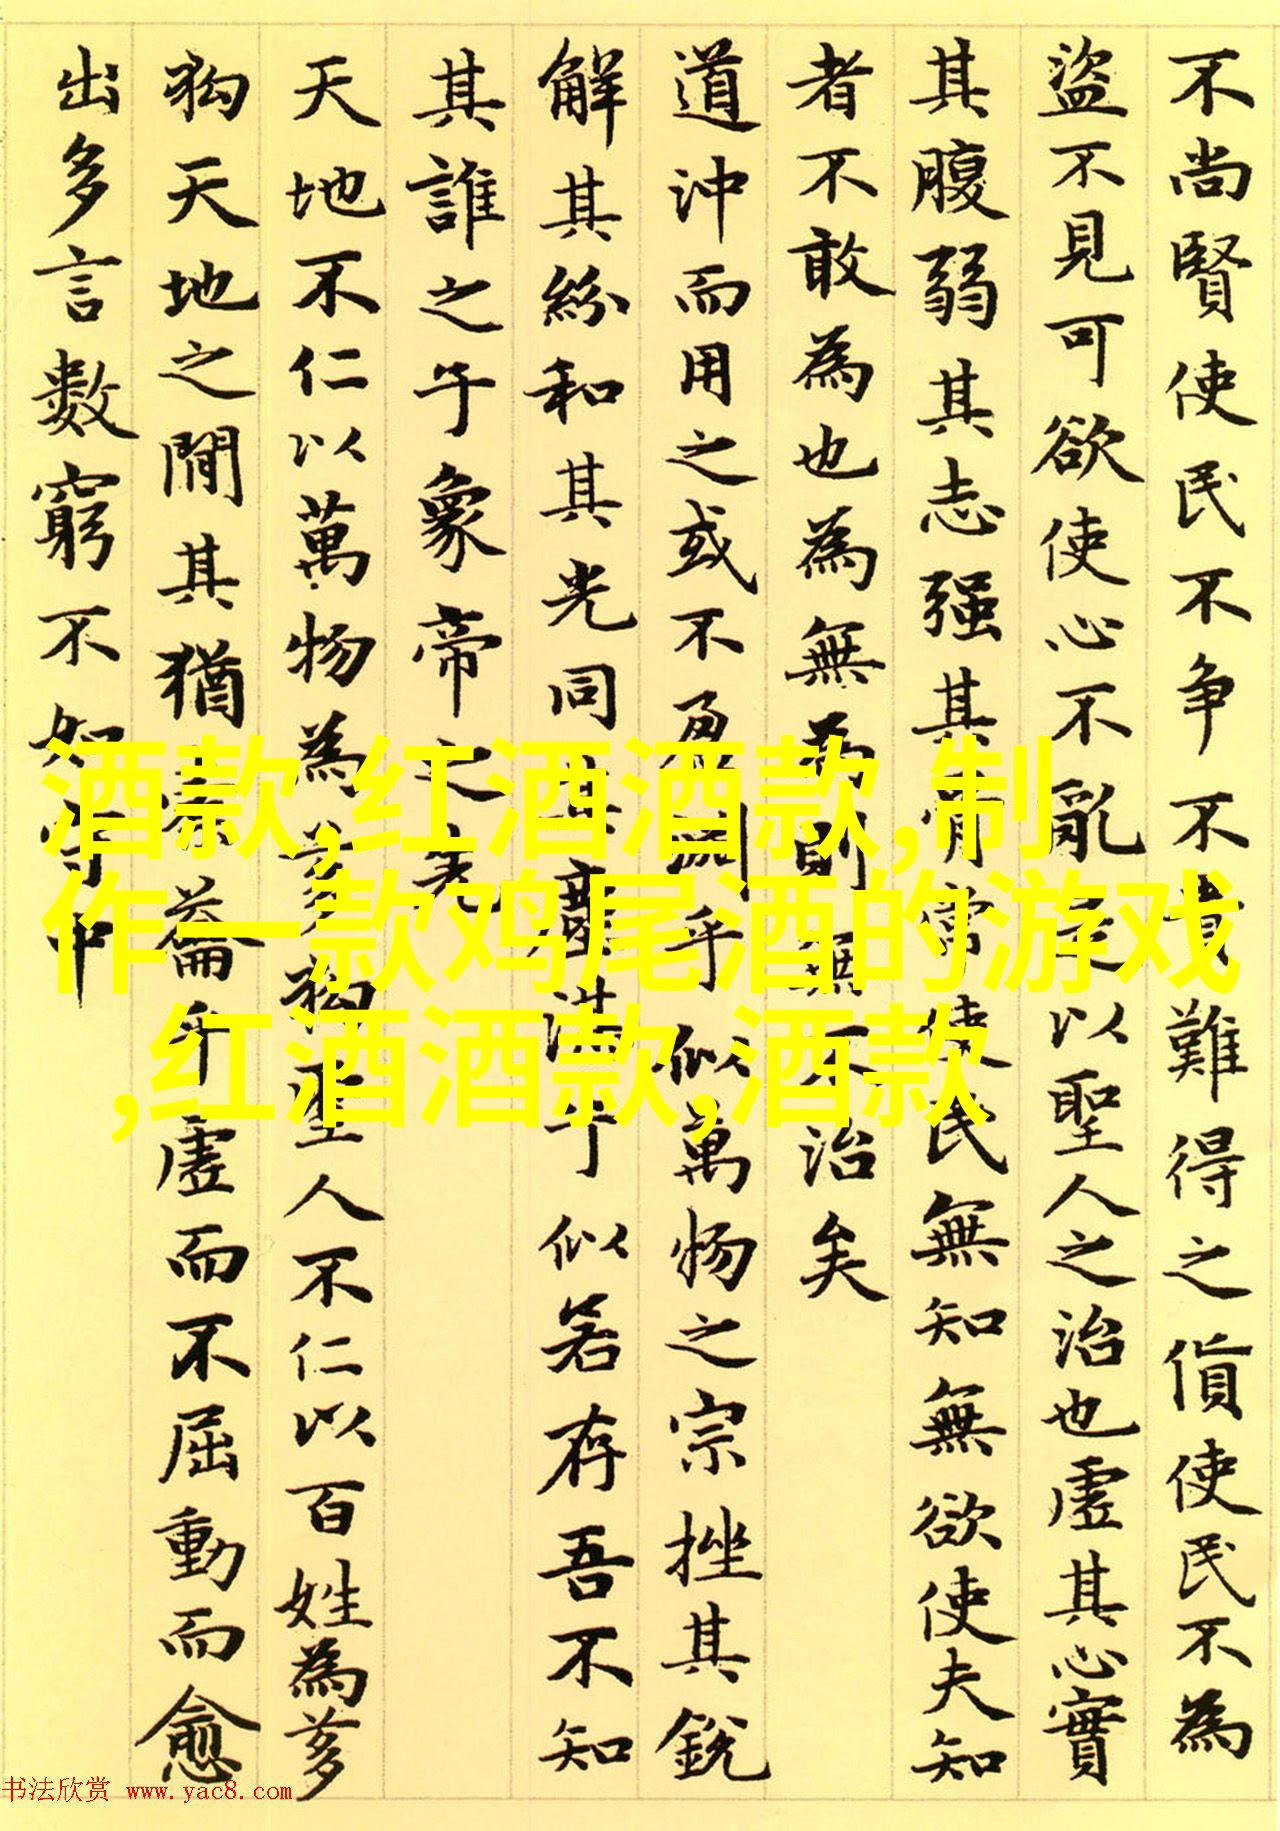 不尚賢使民不争不貴難得之貨使民不為
盜不見可欲使心不亂是以聖人之治也虛其心實
其腹弱其志强其骨常使民無知無欲使夫知
者不敢為也為無為則無不治矣
道沖而用之或不盈淵乎似萬物之宗挫其銳
解其紛和其光同其塵湛乎似若存吾不知
其誰之子象帝之先
天地不仁以萬物為芻狗聖人不仁以百姓為芻
狗天地之間其猶橐籥乎虛而不屈動而愈
出多言數窮不如守中
酒款,红酒酒款,制
作一款鸡尾酒的游戏
,红酒酒款,酒款
书法欣赏 www.yac8.com